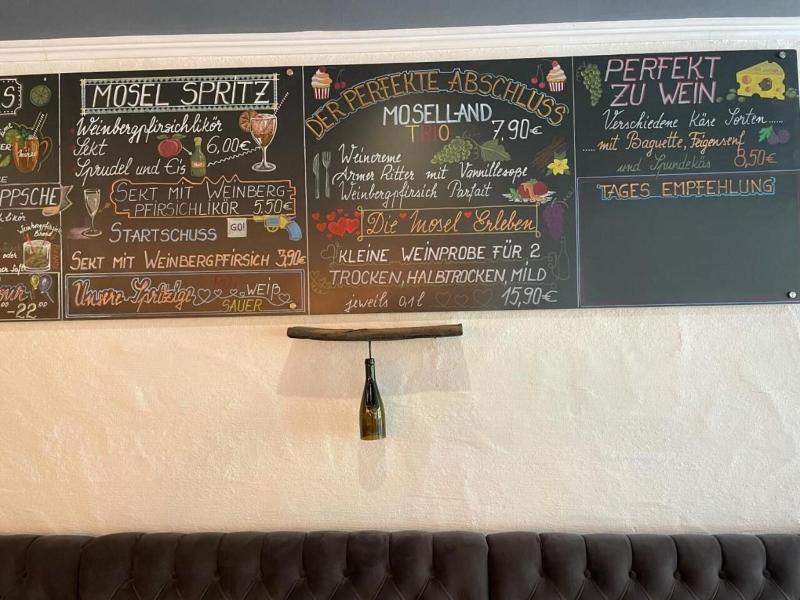 S
PPSCHE
likör
oder
-22⁰⁰
MOSEL SPRITZ
Weinbergpfirsichlikör
Sekt 6,00€
Sprudel und Eis
SEKT MIT WEINBERG
PFIRSICHLIKÖR 5.50€
STARTSCHUSS GO!
SEKT MIT WEINBERGPFIRSICH 3,90€
Unsere Spritzige ROT WEIß
SAUER
DER PERFEKTE ABSCHLUSS
MOSELLAND
TRIO 7,90€
Weincreme
Armer Ritter mit Vanillesoße
Weinbergpfirsich Parfait
Die Mosel Erleben
KLEINE WEINPROBE FÜR 2
TROCKEN, HALBTROCKEN, MILD
jeweils 0,1l 15,90€
PERFEKT
ZU WEIN
Verschiedene Käse Sorten.....
.....mit Baguette, Feigensenf
und Spundekäs 8,50€
TAGES EMPFEHLUNG